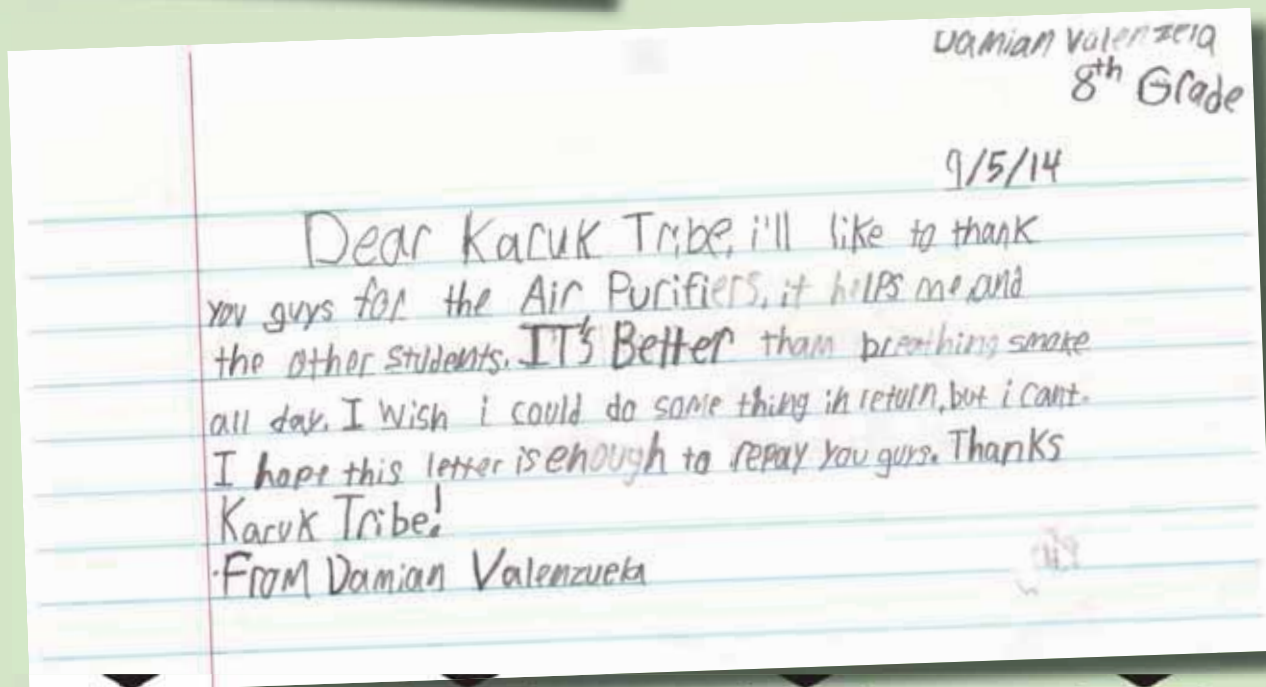 Damian Valenzela
8th Grade
9/5/14
Dear Karuk Tribe, i'll like to thank
you guys for the Air Purifiers, it helps me and
the other students. IT's Better than breathing smoke
all day. I Wish i could do some thing in return, but i cant.
I hope this letter is enough to repay you guys. Thanks
Karuk Tribe!
From Damian Valenzuela